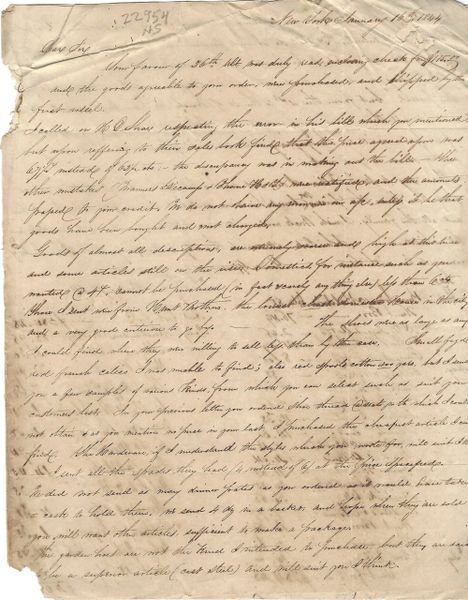 22954
NS
New York January 16th 1844
Dear Sir
Your favour of 26th ult was duly read, enclosing check for
and the goods agreeable to your order, were purchased, and shipped by the
first vessel.
I called on respecting the error in his bills which you mentioned
but upon reffering to their sales book find that the price agreed upon was
67½ instead of 62½ cts — the discrepancy was in making out the bills — the
other mistakes were rectified, and the amounts
passed to your credit. We do not charge any unless it be that
goods have been bought and not charged.
Goods of almost all descriptions, are extremely scarce and high at this time
and some articles still on the rise, Domestics for instance such as you
wanted @ 4¾ cannot be purchased (in fact scarcely any thing else) less than 6 cts
Those I sent were from the lowest House in the
and a very good criterion to go by. The shoes were as large as any
I could find where they were willing to sell less than by the case. Small fig'd
red french calico I was unable to find; also red spools cotton but I send
you a few samples of various kinds, from which you can select such as suit your
customers best. In your previous letter you ordered Shoe thread which I could
not obtain & as you mention no price in your last I purchased the cheapest article I could
find. The Hardware, if I understand the styles, which you wrote for, will suit
I sent all the spades they had (4 instead of 6) at the price specified.
We did not send as many dinner plates as you ordered as it would have taken
a cask to hold them, we send 4 dz in a basket, and hope when they are sold
you will want other articles, sufficient to make a package.
The garden hoes are not the kind I intended to purchase — but they are said
to be a superior article (cast steel) and will suit you I think.